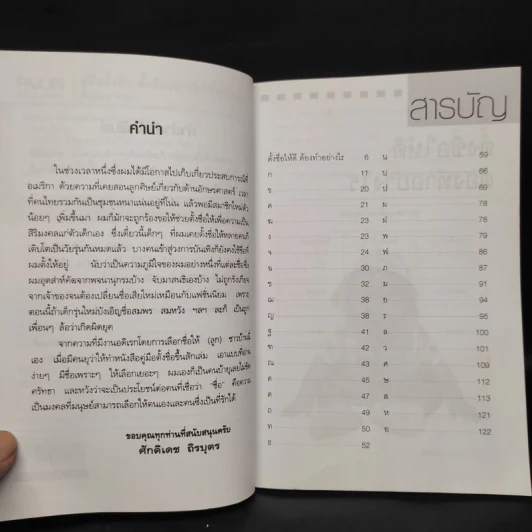 คำนำ
ในช่วงเวลาหนึ่งซึ่งผมได้มีโอกาสไปเก็บเกี่ยวประสบการณ์ที่
อเมริกา ด้วยความที่เคยสอนลูกศิษย์เกี่ยวกับด้านอักษรศาสตร์ เวลา
ที่คนไทยรวมกันเป็นชุมชนหนาแน่นอยู่ที่โน่น แล้วพอมีสมาชิกใหม่ตัว
น้อยๆ เพิ่มขึ้นมา ผมก็มักจะถูกร้องขอให้ช่วยตั้งชื่อให้เพื่อความเป็น
สิริมงคลแก่ตัวเด็กเอง ซึ่งเดี๋ยวนี้เด็กๆ ที่ผมเคยตั้งชื่อให้หลายคนก็
เติบโตเป็นวัยรุ่นกันหมดแล้ว บางคนเข้าสู่วงการบันเทิงก็ยังคงใช้ชื่อที่
ผมตั้งให้อยู่ นับว่าเป็นความภูมิใจของผมอย่างหนึ่งที่แต่ละชื่อซึ่ง
ผมอุตส่าห์คัดจากพจนานุกรมบ้าง จับมาสนธิเองบ้าง ไม่ถูกรังเกียจ
จากเจ้าของจนต้องเปลี่ยนชื่อเสียใหม่เหมือนกับแฟชั่นนิยม เพราะ
ตอนนี้ถ้าเด็กรุ่นใหม่บังเอิญชื่อสมพร สมหวัง ฯลฯ ละก็ เป็นถูก
เพื่อนๆ ล้อว่าเกิดผิดยุค
จากความที่มีงานอดิเรกโดยการเลือกชื่อให้ (ลูก) ชาวบ้านนี้
เอง เมื่อมีคนยุว่าให้ทำหนังสือคู่มือตั้งชื่อขึ้นสักเล่ม เอาแบบที่อ่าน
ง่ายๆ มีชื่อเพราะๆ ให้เลือกเยอะๆ ผมเองก็เป็นคนบ้ายุเลยไม่ขัด
ศรัทธา และหวังว่าจะเป็นประโยชน์ต่อคนที่เชื่อว่า "ชื่อ" คือความ
เป็นมงคลที่มนุษย์สามารถเลือกให้ตนเองและคนซึ่งเป็นที่รักได้
ขอบคุณทุกท่านที่สนับสนุนครับ
ศักดิเดช ถิรบุตร
สารบัญ
ตั้งชื่อให้ดี ต้องทำอย่างไร 6
ก 11
ข 20
ค 21
ฆ 23
ง 23
จ 24
ฉ 30
ช 32
ฌ 38
ญ 38
ฐ 41
ฑ 42
ณ 43
ด 45
ต 47
ถ 49
ท 49
ธ 52
น 59
บ 67
ป 69
ผ 78
ฝ 78
พ 79
ฟ 86
ภ 87
ม 91
ย 94
ร 95
ล 100
ว 101
ศ 109
ษ 112
ส 112
ห 121
อ 122